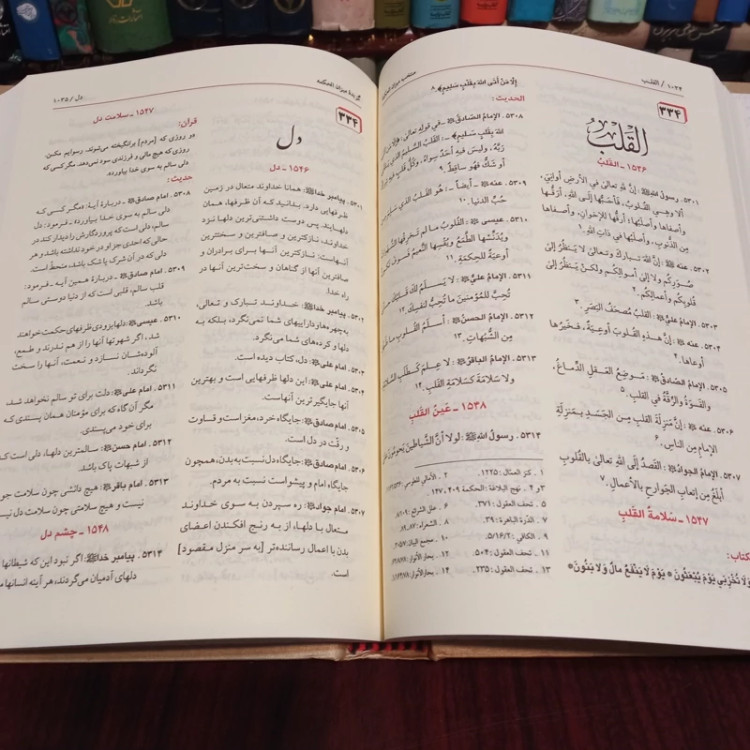 ۱۰۳۴ / القلب
۳۳۴
القَلْب
۱۵۴۶ ـ القَلبُ
۵۳۰۱ . رسولُ اللهِ ﷺ : إنَّ للهِ تعالى في الأرضِ أوانِيَ،
ألا وهِيَ القُلوبُ، فَأَحَبُّها إلَى اللهِ، أرَقُّها
وأصفاها وأصلَبُها؛ أرَقُّها للإخوانِ، وأصفاها
مِن الذُّنوبِ، وأصلَبُها في ذاتِ اللهِ.
۵۳۰۲ . عنه ﷺ : إنَّ اللهَ تباركَ وتعالى لا يَنظُرُ إلى
صُوَرِكُم ولا إلى أموالِكُم ولكنْ يَنظُرُ إلى
قُلوبِكُم وأعمالِكُم.
۵۳۰۳ . الإمامُ عليٌّ ﷺ : القَلبُ مُصحَفُ البَصَرِ.
۵۳۰۴ . عنه ﷺ : إنَّ هذهِ القُلوبَ أوعِيَةٌ، فَخَيرُها
أوعاها.
۵۳۰۵ . الإمامُ الصّادقُ ﷺ : مَوضِعُ العَقلِ الدِّماغُ،
والقَسوَةُ والرِّقَّةُ في القَلبِ.
۵۳۰۶ . عنه ﷺ : إنَّ مَنزِلَةَ القَلبِ مِن الجَسَدِ بمَنزِلَةِ
الإمامِ مِن الناسِ.
۵۳۰۷ . الإمامُ الجوادُ ﷺ : القَصدُ إلَى اللهِ تعالى بالقُلوبِ
أبلَغُ مِن إتعابِ الجَوارِحِ بالأعمالِ.
۱۵۴۷ ـ سَلامةُ القَلبِ
الكتاب:
وَلَا تُخْزِنِي يَوْمَ يُبْعَثُونَ * يَوْمَ لَا يَنْفَعُ مَالٌ وَلَا بَنُونَ *
إِلَّا مَنْ أَتَى اللهَ بِقَلْبٍ سَلِيمٍ
الحديث:
۵۳۰۸ . الإمامُ الصّادقُ ﷺ ـ في قولِهِ تعالى:
اللهَ بِقَلْبٍ سَلِيمٍ ـ : القَلبُ السَّليمُ الذي
رَبَّهُ، ولَيس فيهِ أحَدٌ سِواهُ، وكُلُّ قَلبٍ
أو شَكٌّ فهُو ساقِطٌ.
۵۳۰۹ . عنه ﷺ ـ أيضاً ـ : هُو القَلبُ الذي
حُبِّ الدنيا.
۵۳۱۰ . عيسى ﷺ : القُلوبُ ما لم تَخرِقْها الشَّهَواتُ
ويُدَنِّسْها الطَّمَعُ ويُقَسِّها النَّعيمُ فسَوفَ تَكونُ
أوعِيَةً للحِكمَةِ.
۵۳۱۱ . الإمامُ عليٌّ ﷺ : لا يَسلَمُ لكَ قَلبُكَ
تُحِبَّ للمُؤمنينَ ما تُحِبُّ لنَفسِكَ.
۵۳۱۲ . الإمامُ الحسنُ ﷺ : أسلَمُ القُلوبِ ما
مِن الشُّبُهاتِ.
۵۳۱۳ . الإمامُ الباقرُ ﷺ : لا عِلمَ كَطَلَبِ
ولا سَلامَةَ كَسَلامَةِ القَلبِ.
۱۵۴۸ ـ عَينُ القَلبِ
۵۳۱۴ . رسولُ اللهِ ﷺ : لَولا أنَّ الشَّياطينَ يَحومونَ
۱ . كنز العمّال : ۱۲۲۵.
۳ و ۴ . نهج البلاغة : الحكمة ۴۰۹
۵ . تحف العقول : ۳۷۱.
۷ . الدّرة الباهرة : ۳۹.
۹ . الكافي : ۵/۱۶/۲
۱۱ . تحف العقول : ۵۰۴.
۱۳ . تحف العقول : ۲۳۵.
گزیدۀ میزان الحکمه
دل / ۱۰۳۵
۳۳۴
دل
۱۵۴۶ ـ دل
۵۳۰۱ . پیامبر خدا ﷺ : همانا خداوند متعال در زمین
ظرفهایی دارد. بدانید که آن ظرفها، همان
دلهایند. پس دوست داشتنی‌ترین دلها نزد
خداوند، نازکترین و صافترین و سخت‌ترین
آنهاست: نازکترین آنها برای برادران و
صافترین آنها از گناهان و سخت‌ترین آنها در
راه خدا.
۵۳۰۲ . پیامبر خدا ﷺ : خداوند تبارک و تعالی،
به چهره‌ها و داراییهای شما نمی‌نگرد، بلکه به
دلها و کرده‌های شما می‌نگرد.
۵۳۰۳ . امام علی ﷺ : دل، کتاب دیده است.
۵۳۰۴ . امام علی ﷺ : این دلها ظرفهایی است و بهترین
آنها جایگیرترین آنهاست.
۵۳۰۵ . امام صادق ﷺ : جایگاه خرد، مغز است و قساوت
و رقّت در دل است.
۵۳۰۶ . امام صادق ﷺ : جایگاه دل نسبت به بدن، همچون
جایگاه امام و پیشواست نسبت به مردم.
۵۳۰۷ . امام جواد ﷺ : ره سپردن به سوی خداوند
متعال با دلها، از به رنج افکندن اعضای
بدن با اعمال رساننده‌تر [به سر منزل مقصود]
است.
۱۵۴۷ ـ سلامت دل
قرآن:
در روزی که [مردم] برانگیخته می‌شوند، رسوایم مکن.
روزی که هیچ مالی و فرزندی سود نمی‌دهد. مگر کسی که
دلی سالم به سوی خدا بیاورد.
حدیث:
۵۳۰۸ . امام صادق ﷺ ـ دربارۀ آیۀ: مگر کسی که
دلی سالم به سوی خدا بیاورد ـ فرمود: دل
سالم، دلی است که پروردگارش را دیدار کند در
حالی که احدی جز او در خود نداشته باشد و هر
دلی که در آن شرک یا شک باشد، منحطّ است.
۵۳۰۹ . امام صادق ﷺ ـ دربارۀ همین آیه ـ فرمود:
قلب سالم، قلبی است که از دنیا دوستی سالم
باشد.
۵۳۱۰ . عیسی ﷺ : دلها بزودی ظرفهایی حکمت خواهند
شد، اگر شهوتها آنها را از هم ندرند و طمع،
آلوده‌شان نسازد و نعمت، آنها را سخت
نگرداند.
۵۳۱۱ . امام علی ﷺ : دلت برای تو سالم نخواهد شد،
مگر آن گاه که برای مؤمنان همان پسندی که
برای خود می‌پسندی.
۵۳۱۲ . امام حسن ﷺ : سالمترین دلها، دلی است که
از شبهات پاک باشد.
۵۳۱۳ . امام باقر ﷺ : هیچ دانشی چون
نیست و هیچ سلامتی چون سلامت دل
۱۵۴۸ ـ چشم دل
۵۳۱۴ . پیامبر خدا ﷺ : اگر نبود این که شیطانها
دلهای آدمیان می‌گردند، هر آینه انسانها